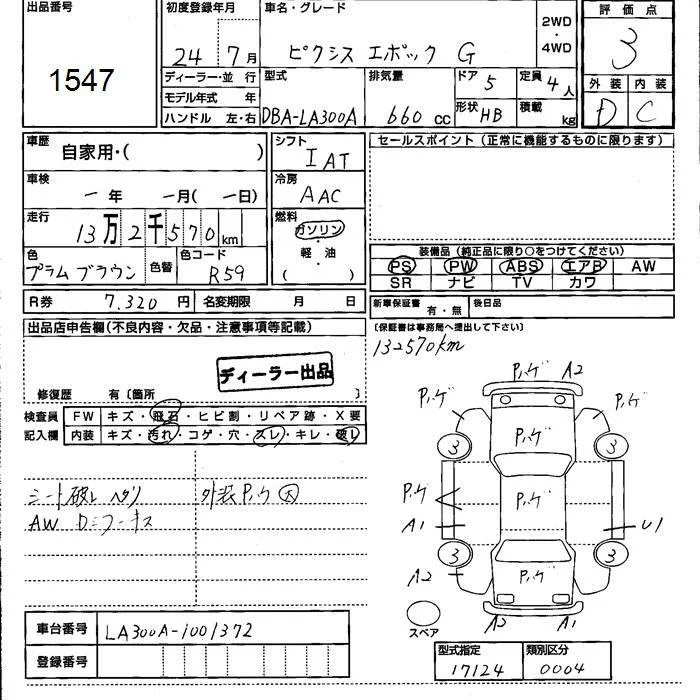 出品番号 初度登録年月 車名・グレード 2WD・4WD 評価点
1547 24 7月 ピクシス エポック G 3
ディーラー・並行 型式 排気量 ドア 5 定員 4人 外装 内装
モデル年式 年 形状 HB 積載 kg D C
ハンドル 左・右 DBA-LA300A 660 CC
車歴 自家用・( ) シフト IAT セールスポイント(正常に機能するものに限ります)
車検 一年 一月(一日) 冷房 AAC
走行 13万2千570km 燃料 ガソリン・軽・油 ( )
色 プラムブラウン 色替 色コード R59
装備品(純正品に限り○をつけてください)
PS PW ABS エアB AW
SR ナビ TV カワ
R券 7.320円 名変期限 月 日 新車保証書 有・無 後日品
出品店申告欄(不良内容・欠品・注意事項等記載) (保証書は事務局へ提出して下さい)
132570km
ディーラー出品
修復歴 有〔箇所 〕
検査員 FW キズ・飛石・ヒビ割・リペア跡・X要
記入欄 内装 キズ・汚れ・コゲ・穴・スレ・キレ・破レ
シート破レ ヘタリ 外装Pハゲ大
AW
Pハゲ A2
Pハゲ Pハゲ
3 Pハゲ 3
Pハゲ Pハゲ
A1 U1
3 3
A2 Pハゲ
スペア A2 A1
車台番号 LA300A-1001372
登録番号
型式指定 類別区分
17124 0004